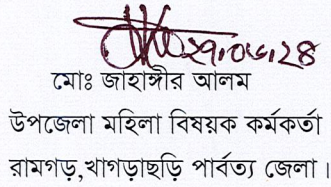 ২৭.০৬.২৪
মোঃ জাহাঙ্গীর আলম
উপজেলা মহিলা বিষয়ক কর্মকর্তা
রামগড়,খাগড়াছড়ি পার্বত্য জেলা।